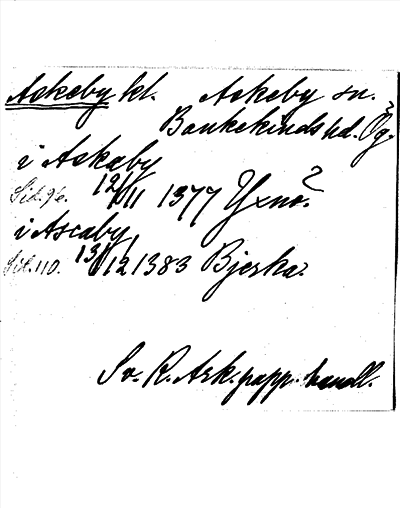 Askeby kl. Askeby sn.
Bankekinds hd. Ög.
i Askaby
Sid. 96. 12/11 1377 Yxnö?
i Ascaby
Sid. 110. 13/12 1383 Bjerka.
Sv. R. Ark. papp. handl.